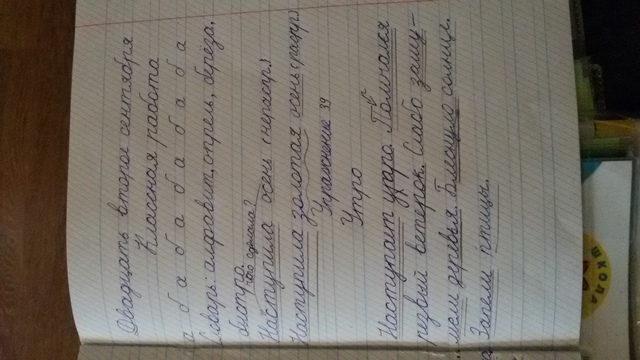 Двадцать второе сентября
Классная работа
а б а б а б а б а б а
Словарь: алфавит, апрель, берёза,
быстро.
что сделала?
Наступила осень (нераспр)
Наступила золотая осень (распр)
Упражнение 39
Утро
Наступает утро. Помчался
резвый ветерок. Слабо зашу-
мели деревья. Блеснуло солнце.
Запели птицы.
ШКОЛА